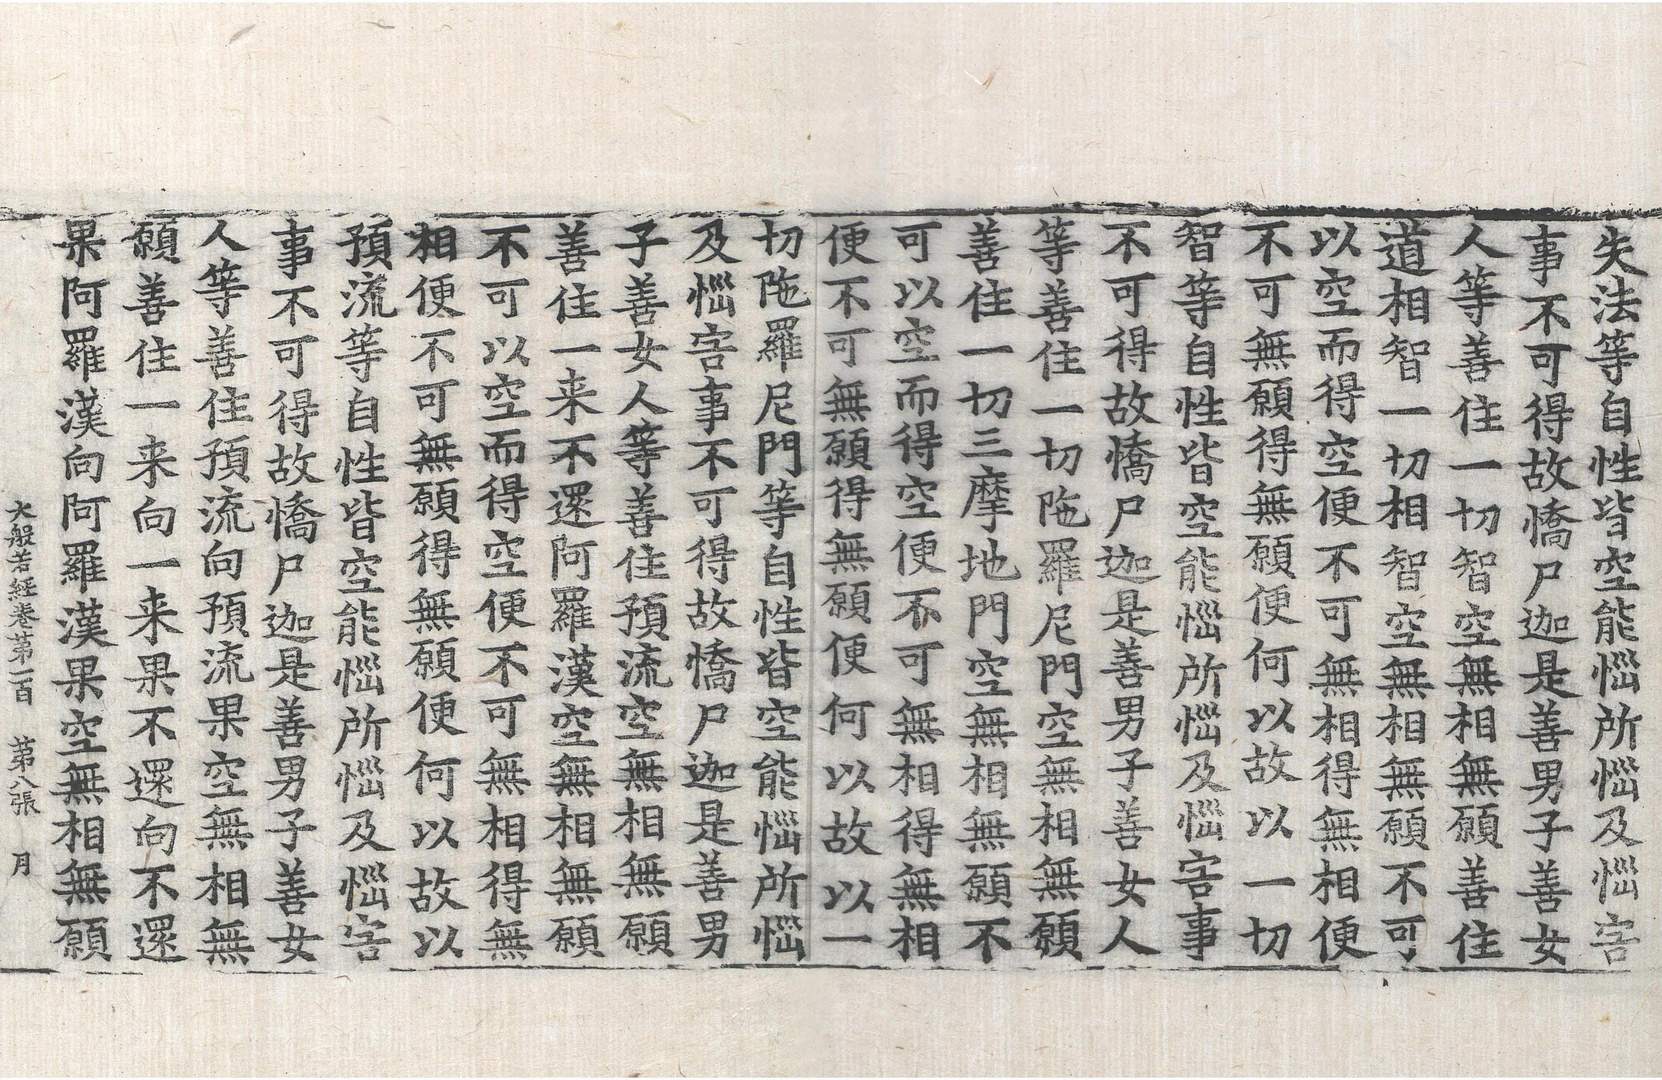 失法等自性皆空能惱所惱及惱害
事不可得故憍尸迦是善男子善女
人等善住一切智空無相無願善住
道相智一切相智空無相無願不可
以空而得空便不可無相得無相便
不可無願得無願便何以故以一切
智等自性皆空能惱所惱及惱害事
不可得故憍尸迦是善男子善女人
等善住一切陁羅尼門空無相無願
善住一切三摩地門空無相無願不
可以空而得空便不可無相得無相
便不可無願得無願便何以故以一
切陁羅尼門等自性皆空能惱所惱
及惱害事不可得故憍尸迦是善男
子善女人等善住預流空無相無願
善住一来不還阿羅漢空無相無願
不可以空而得空便不可無相得無
相便不可無願得無願便何以故以
預流等自性皆空能惱所惱及惱害
事不可得故憍尸迦是善男子善女
人等善住預流向預流果空無相無
願善住一来向一来果不還向不還
果阿羅漢向阿羅漢果空無相無願
大般若經卷第一百 第八張 月